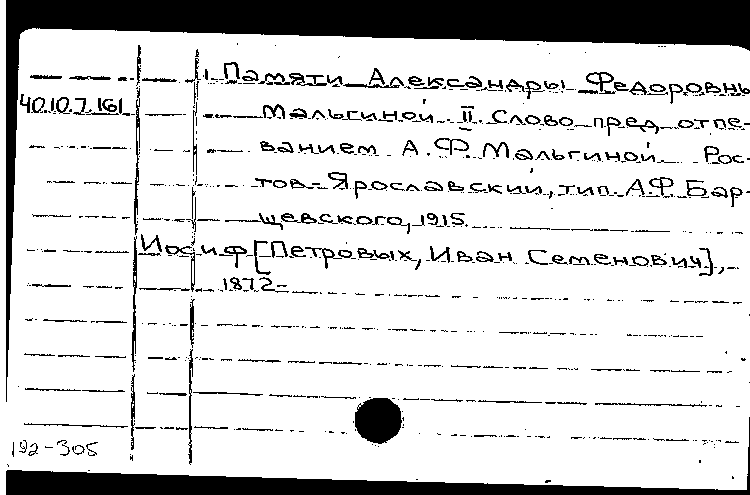 Памяти Александры Федоровны
40.10.7.161 Мальгиной. II. Слово пред отпе-
ванием А.Ф. Мальгиной. Рос-
тов-Ярославский, тип. А.Ф. Бар-
щевского, 1915.
Иосиф [Петровых, Иван Семенович],
1872-
192-305